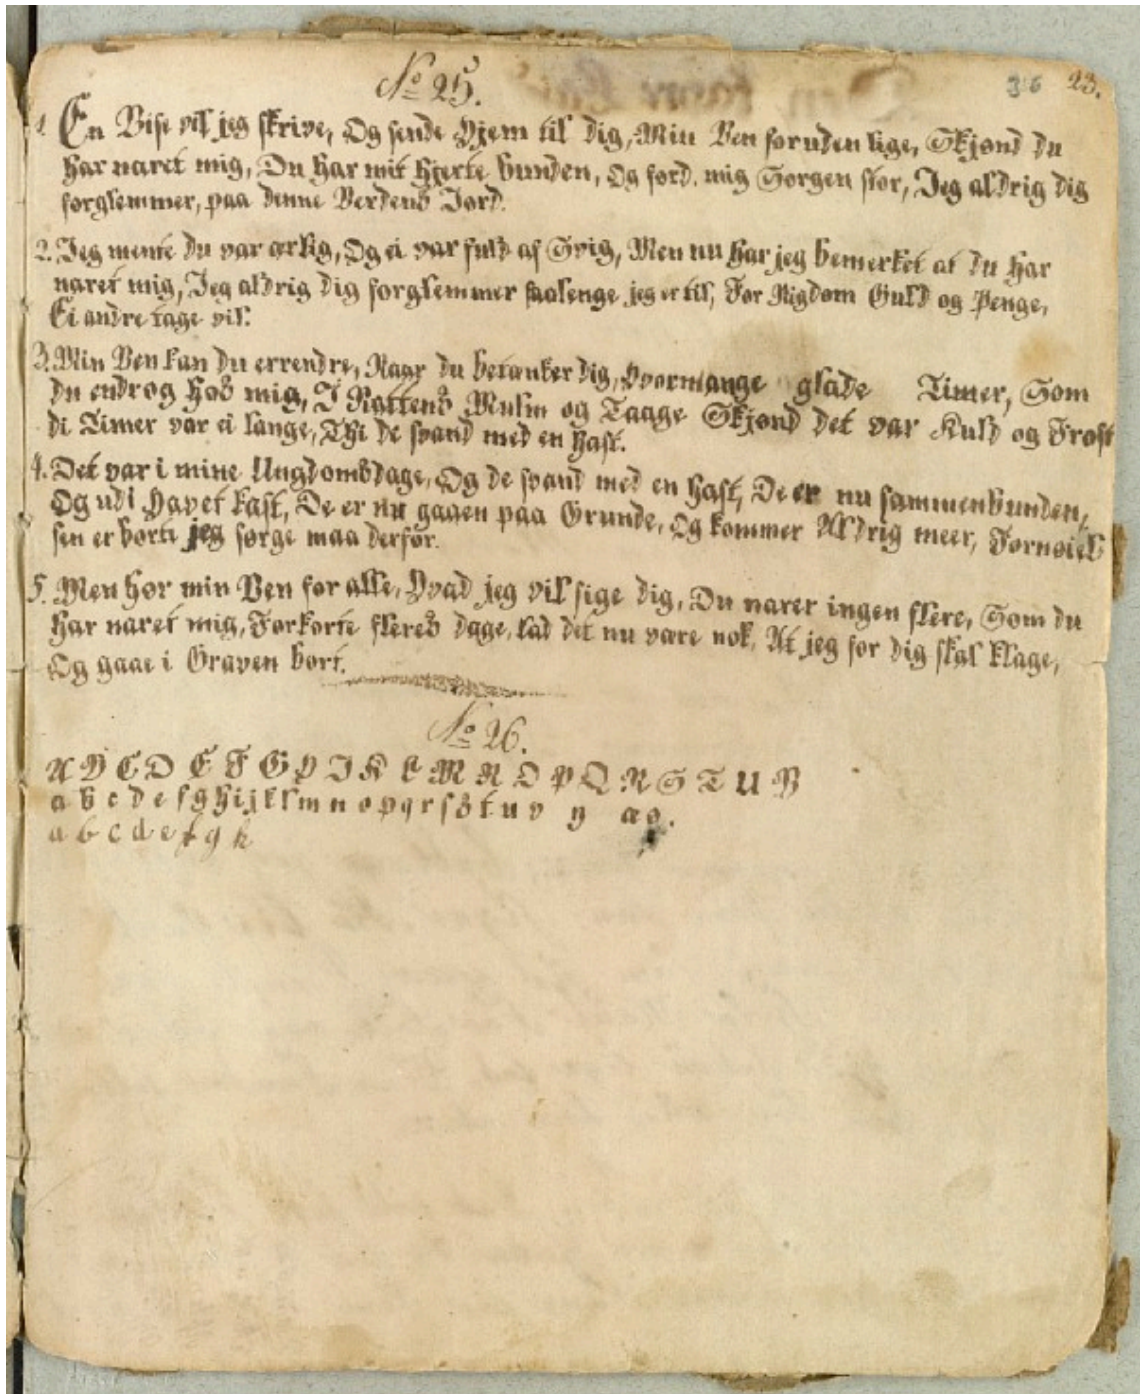 No 25.
36 23.
1. En Vise vil jeg skrive, Og sende Hjem til dig, Min Ven foruden lige, Skjønd du
har naret mig, Du har mit hjerte bunden, Og ford. mig Sorgen stor, Jeg aldrig dig
forglemmer, paa denne Verdens Jord.
2. Jeg mente du var ærlig, Og ei var fuld af Svig, Men nu har jeg bemerket at du har
naret mig, Jeg aldrig dig forglemmer saalenge jeg er til, For Rigdom Guld og Penge,
Ei andre tage vil.
3. Min Ven kan du errendre, Naar du betænker dig, Hvormange glade Timer, Som
du endrog hos mig, I Nattens Mulm og Taage Skjønd det var Kuld og Frost
di Timer var ei lange, Thi de svand med en hast.
4. Det var i mine Ungdomsdage, Og de svand med en hast, De er nu sammenbunden,
Og udi Havet kast, De er nu gaaen paa Grunde, Og kommer Aldrig meer, Fornøiel
sen er borte jeg sørge maa derfor.
5. Men hør min Ven for alle, Hvad jeg vil sige dig, Du narer ingen flere, Som du
har naret mig, Forkorte fleres dage, lad det nu være nok, At jeg for dig skal klage,
Og gaae i Graven bort.
No 26.
A B C D E F G H I K L M N O P Q R S T U V
a b c d e f g h i j k l m n o p q r s s t u v y æ ø.
a b c d e f g h